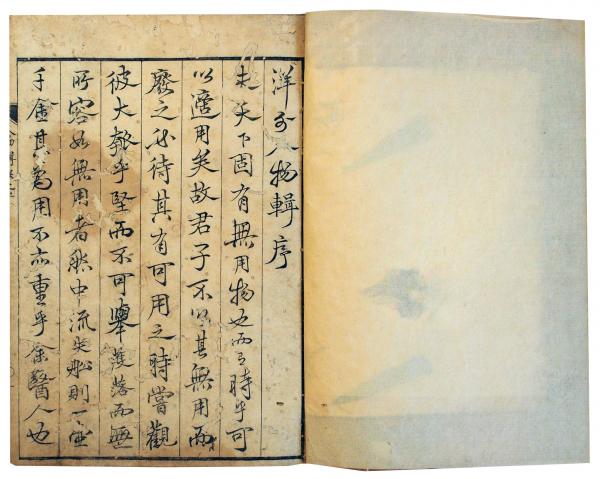 洋方人物輯序
夫天下固有無用物也而有時乎可
以適用矣故君子不以其無用而
廢之必待其有可用之時嘗觀
彼大瓠乎堅而不可舉濩落而無
所容如無用者然中流失船則一壺
千金其為用不亦重乎余醫人也